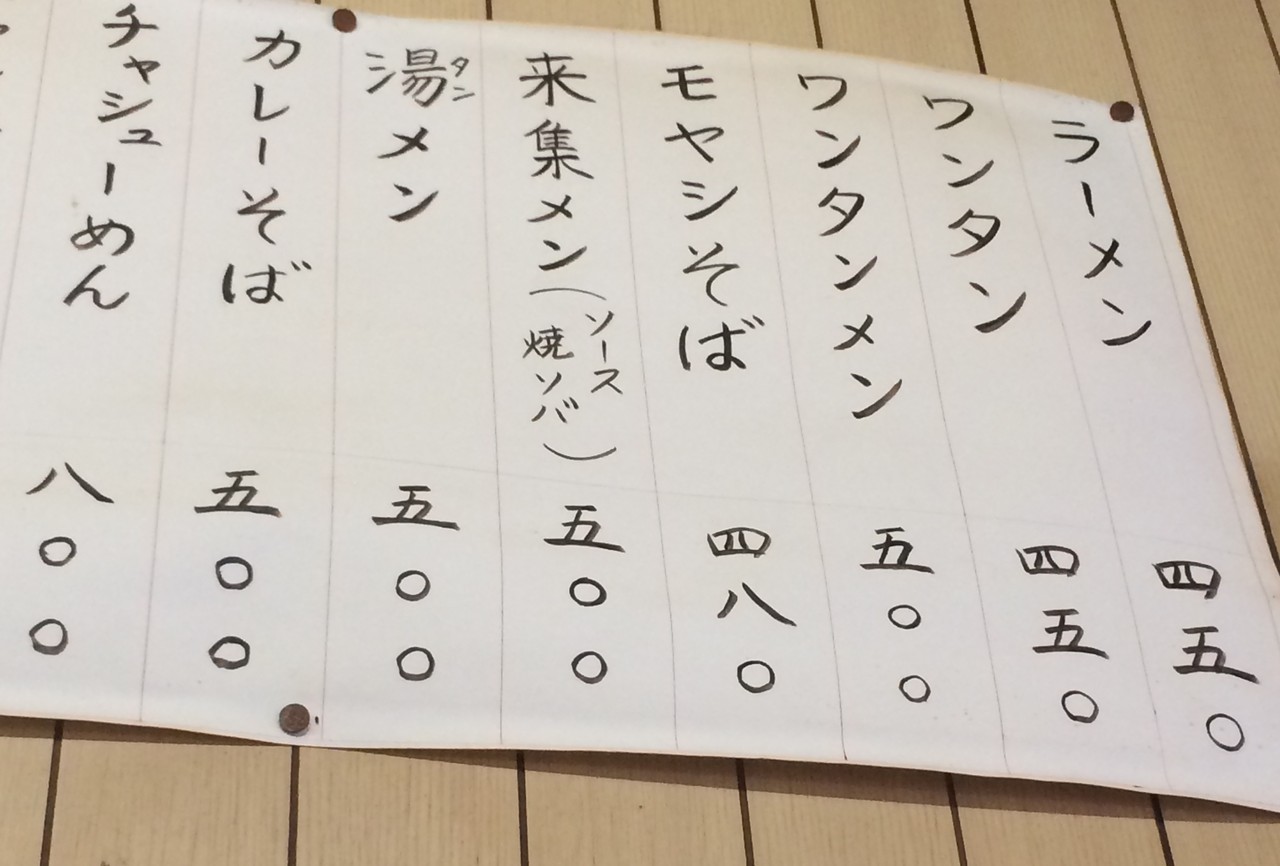 ラーメン 四五〇
ワンタン 四五〇
ワンタンメン 五〇〇
モヤシそば 四八〇
来集メン(ソース焼ソバ) 五〇〇
湯メン タン 五〇〇
カレーそば 五〇〇
チャシューめん 八〇〇